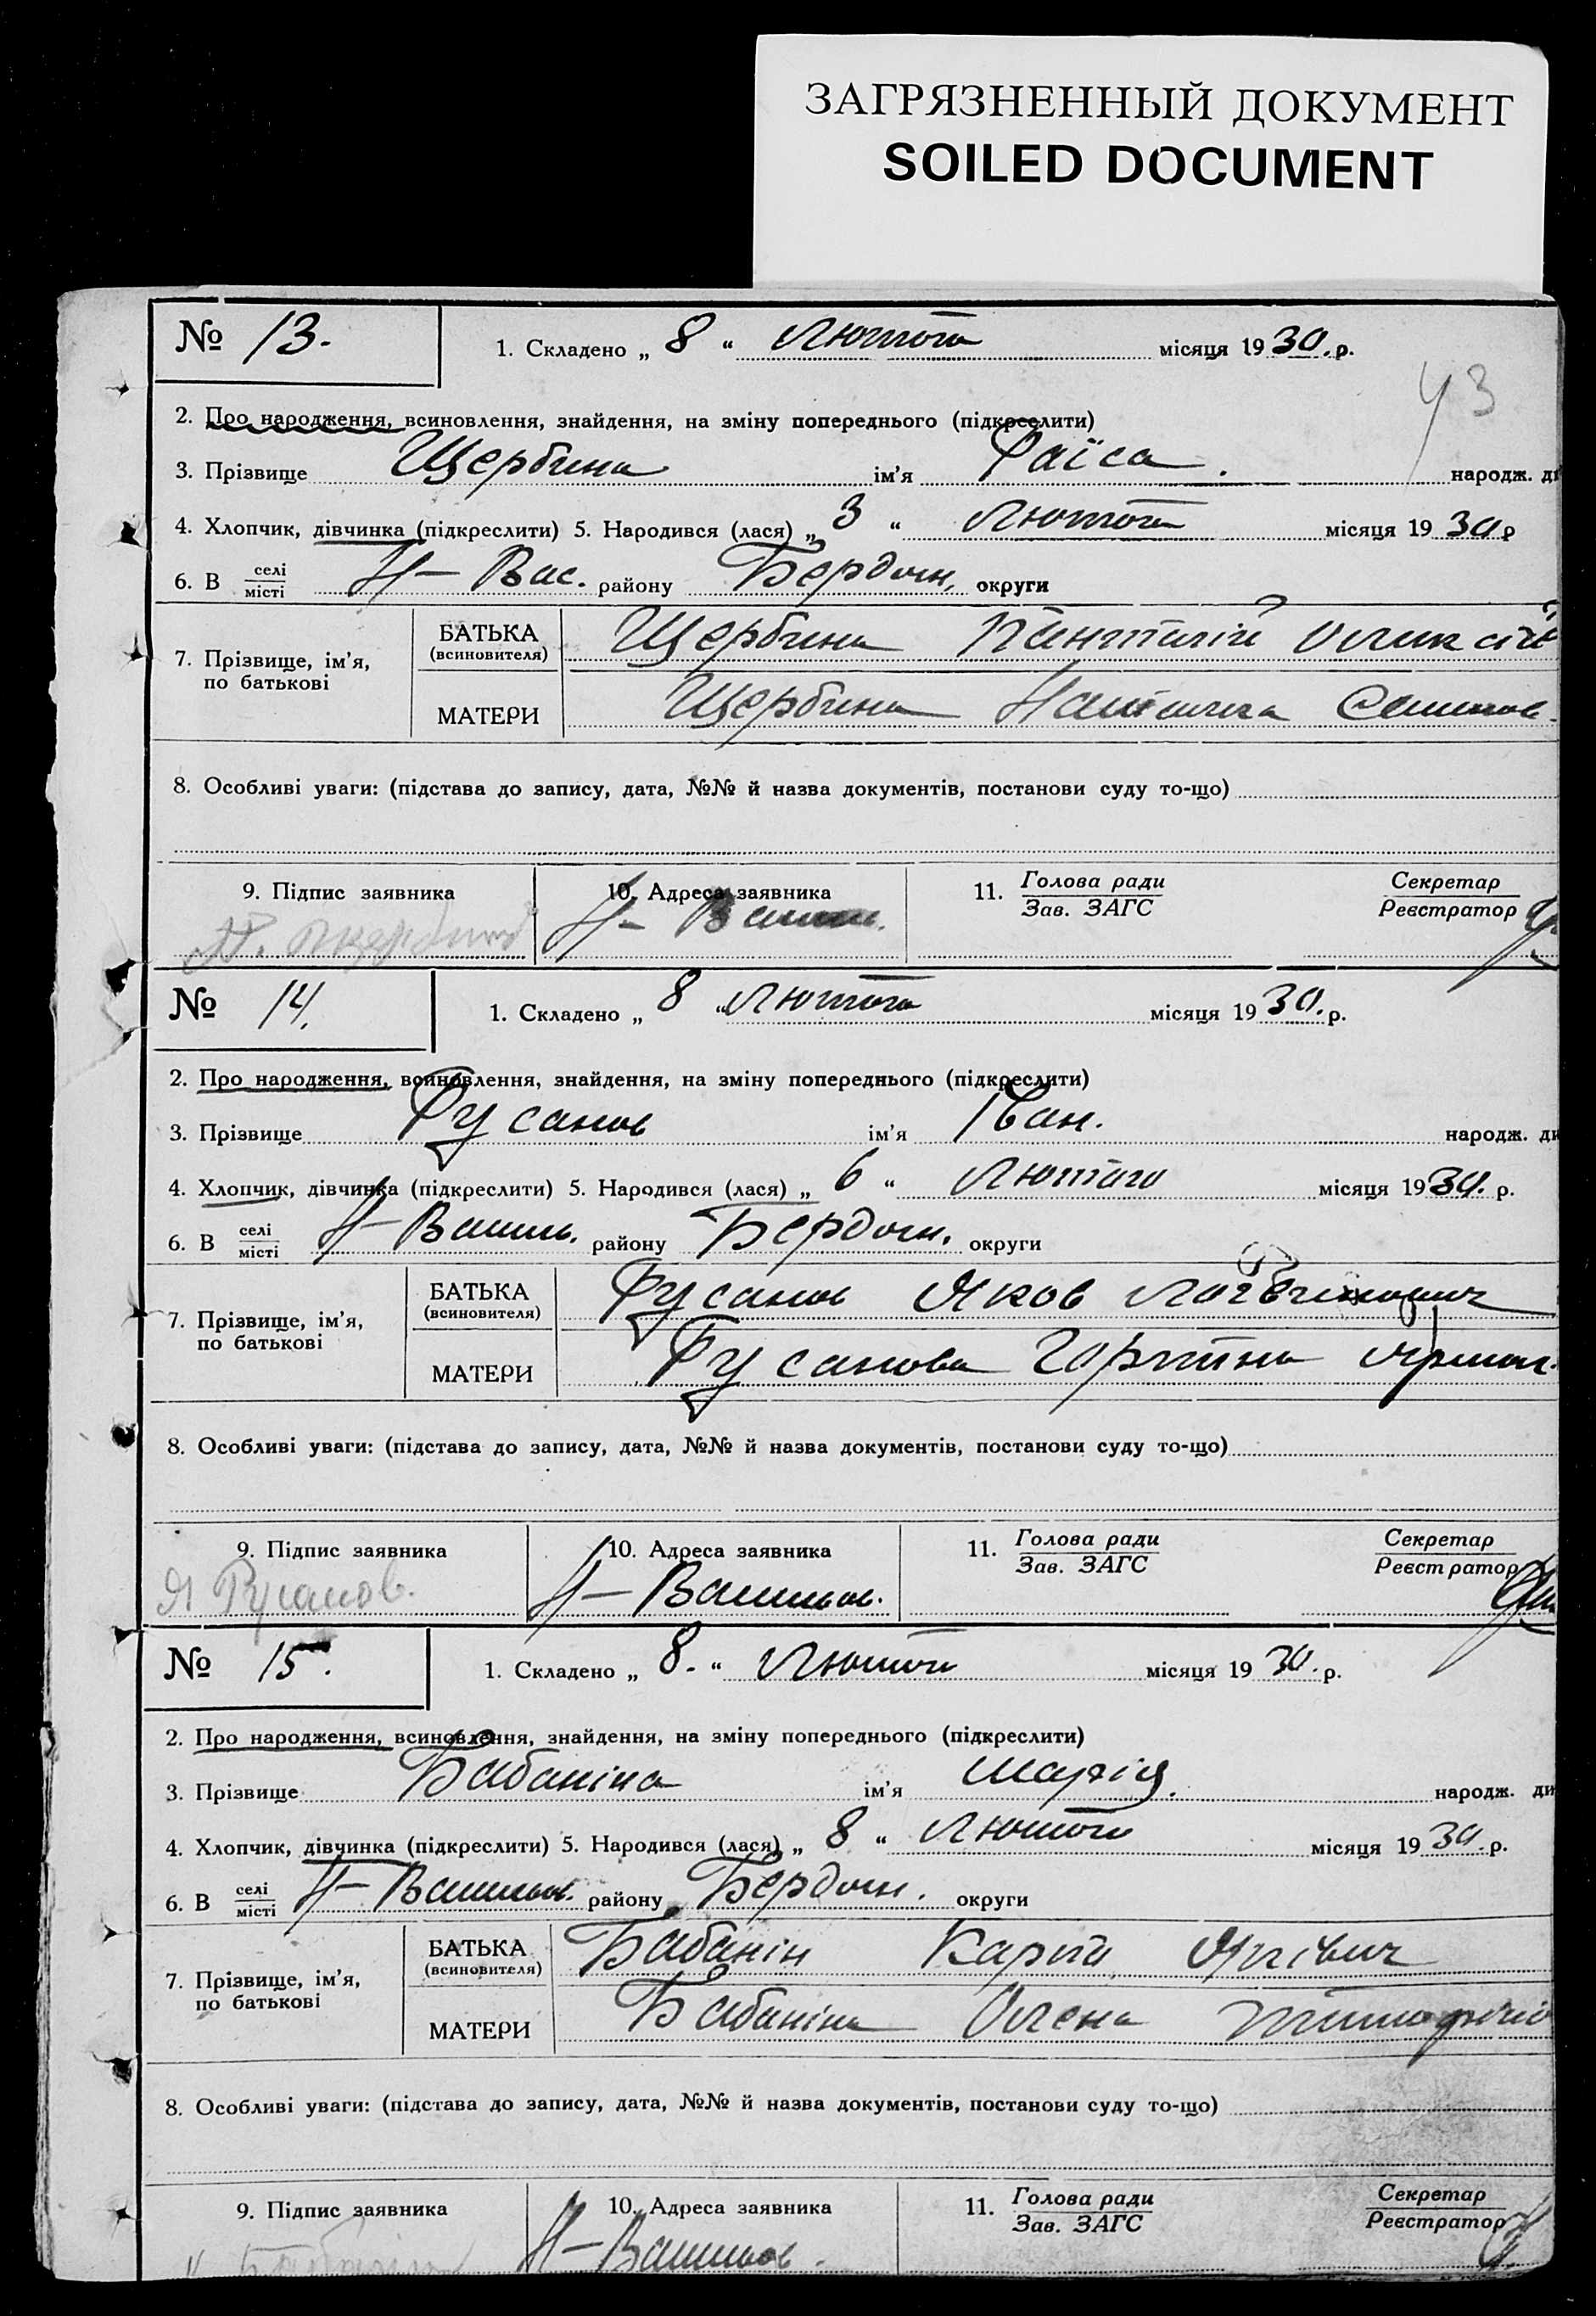 ЗАГРЯЗНЕННЫЙ ДОКУМЕНТ
SOILED DOCUMENT
43
№ 13.
1. Складено „ 8 “ Лютого місяця 1930. р.
2. Про народження, всиновлення, знайдення, на зміну попереднього (підкреслити)
3. Прізвище Щербина ім’я Раїса. народж. ди
4. Хлопчик, дівчинка (підкреслити) 5. Народився (лася) „ 3 “ Лютого місяця 1930 р
6. В селі місті Н-Вас. району Бердян. округи
7. Прізвище, ім’я, по батькові
БАТЬКА (всиновителя) Щербина Пантелій
МАТЕРИ Щербина
8. Особливі уваги: (підстава до запису, дата, №№ й назва документів, постанови суду то-що)
9. Підпис заявника
10. Адреса заявника Н-
11. Голова ради Зав. ЗАГС
Секретар Реєстратор
№ 14.
1. Складено „ 8 “ Лютого місяця 1930. р.
2. Про народження, всиновлення, знайдення, на зміну попереднього (підкреслити)
3. Прізвище Русанов ім’я Іван. народж. ди
4. Хлопчик, дівчинка (підкреслити) 5. Народився (лася) „ 6 “ Лютого місяця 1930. р.
6. В селі місті Н-Василь. району Бердян. округи
7. Прізвище, ім’я, по батькові
БАТЬКА (всиновителя) Русанов Яков Логвинович
МАТЕРИ Русанова Горпина
8. Особливі уваги: (підстава до запису, дата, №№ й назва документів, постанови суду то-що)
9. Підпис заявника Я Русанов.
10. Адреса заявника Н-Васильов.
11. Голова ради Зав. ЗАГС
Секретар Реєстратор
№ 15.
1. Складено „ 8. “ Лютого місяця 1930. р.
2. Про народження, всиновлення, знайдення, на зміну попереднього (підкреслити)
3. Прізвище Бабаніна ім’я Марія. народж. ди
4. Хлопчик, дівчинка (підкреслити) 5. Народився (лася) „ 8 “ Лютого місяця 1930. р.
6. В селі місті Н-Васильов. району Бердян. округи
7. Прізвище, ім’я, по батькові
БАТЬКА (всиновителя) Бабанін Карпо
МАТЕРИ Бабаніна Олена
8. Особливі уваги: (підстава до запису, дата, №№ й назва документів, постанови суду то-що)
9. Підпис заявника
10. Адреса заявника Н-Васильов.
11. Голова ради Зав. ЗАГС
Секретар Реєстратор